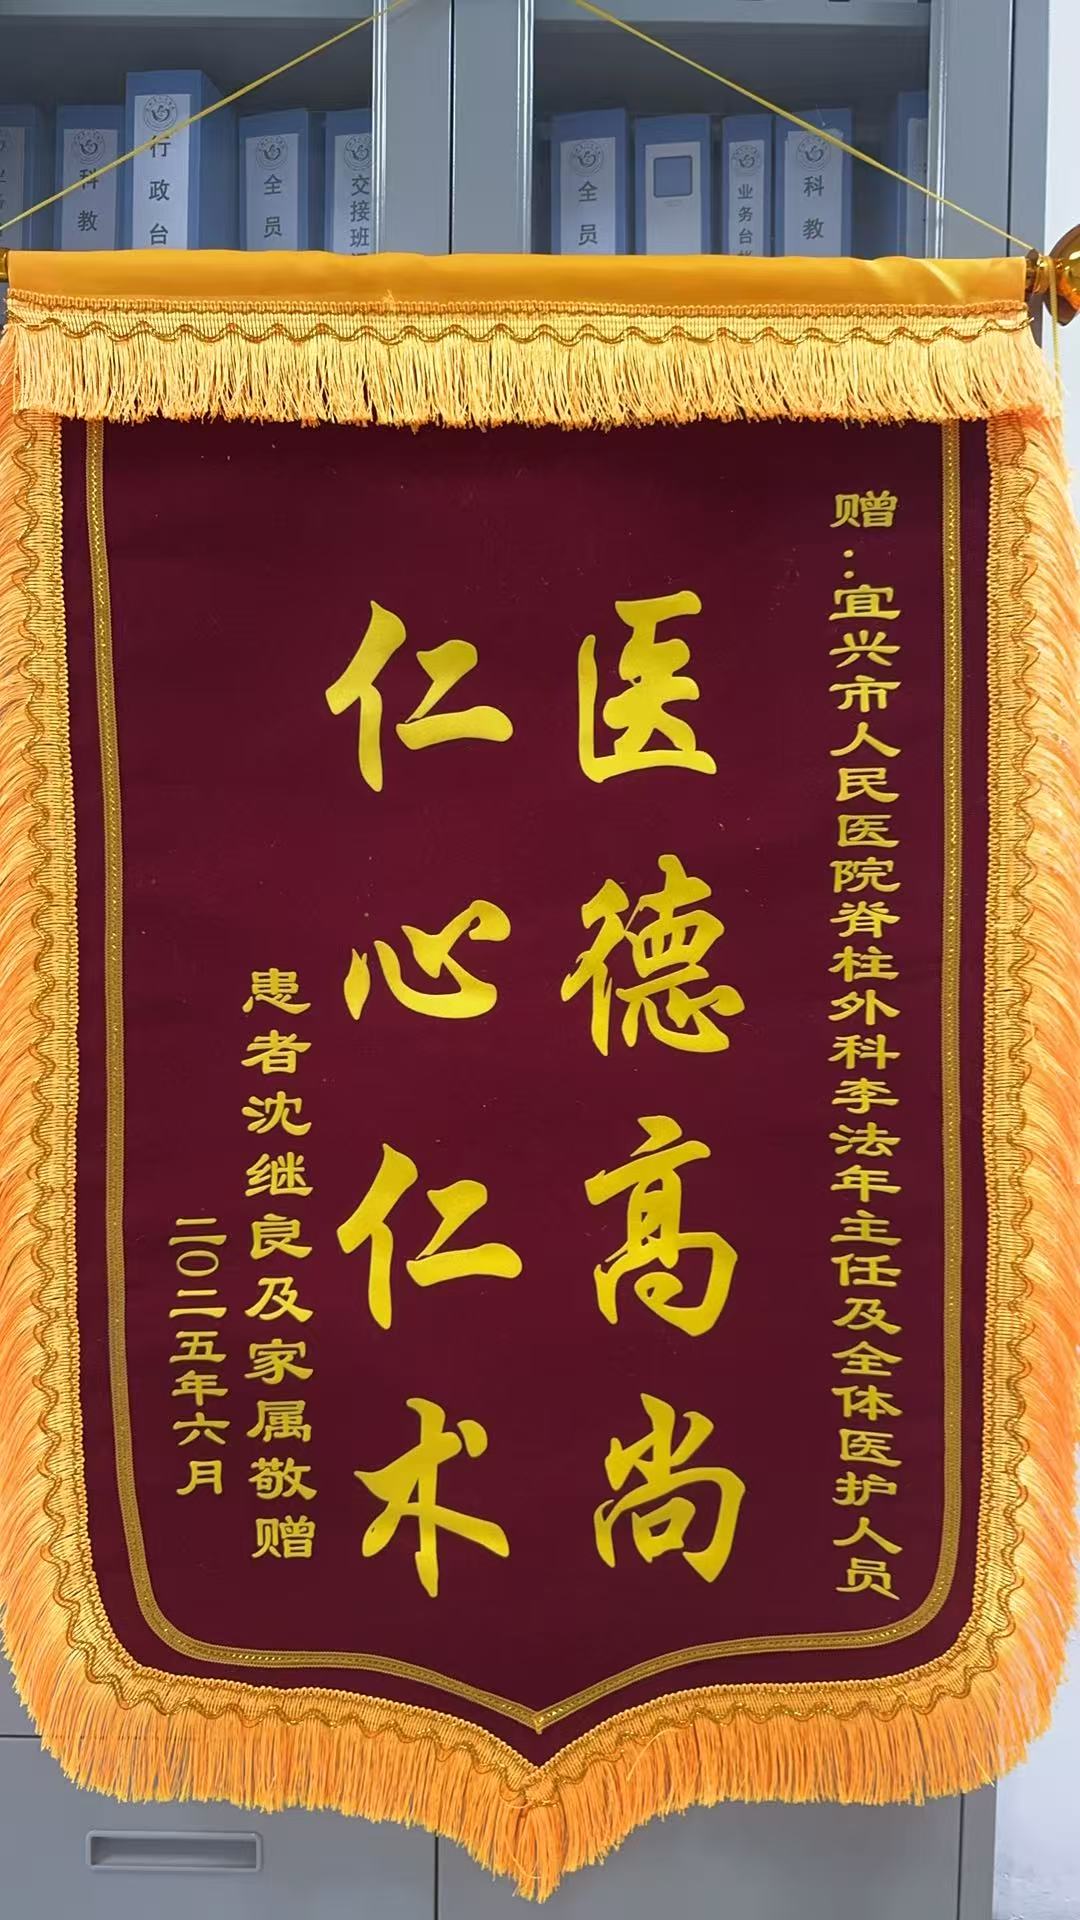 行政台
科教
全员
交接班
全员
业务台
科教
赠：宜兴市人民医院脊柱外科李法年主任及全体医护人员
医德高尚
仁心仁术
患者沈继良及家属敬赠
二〇二五年六月